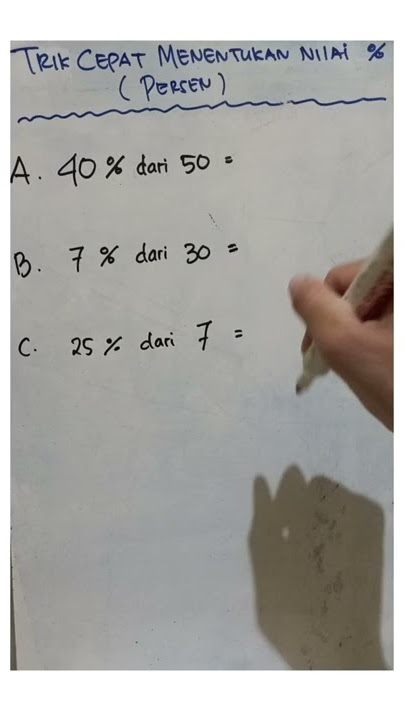 TRIK CEPAT MENENTUKAN NIlAi %
(PERSEN)
A. 40 % dari 50 =
B. 7 % dari 30 =
C. 25 % dari 7 =